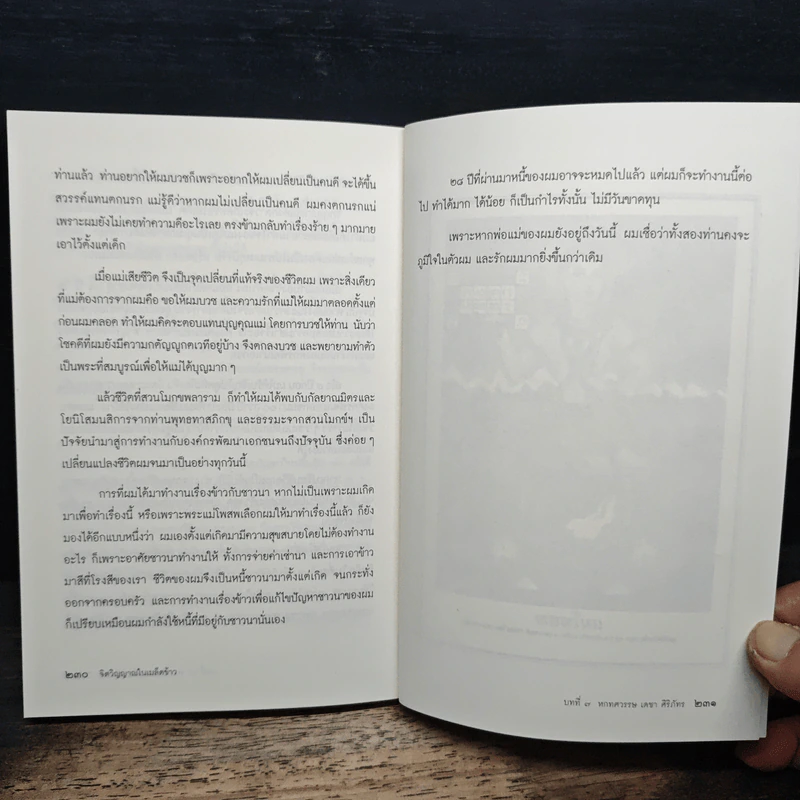 ท่านแล้ว ท่านอยากให้ผมบวชก็เพราะอยากให้ผมเปลี่ยนเป็นคนดี จะได้ขึ้น
สวรรค์แทนตกนรก แม่รู้ดีว่าหากผมไม่เปลี่ยนเป็นคนดี ผมคงตกนรกแน่
เพราะผมยังไม่เคยทำความดีอะไรเลย ตรงข้ามกลับทำเรื่องร้าย ๆ มากมาย
เอาไว้ตั้งแต่เด็ก
เมื่อแม่เสียชีวิต จึงเป็นจุดเปลี่ยนที่แท้จริงของชีวิตผม เพราะสิ่งเดียว
ที่แม่ต้องการจากผมคือ ขอให้ผมบวช และความรักที่แม่ให้ผมมาตลอดตั้งแต่
ก่อนผมคลอด ทำให้ผมคิดจะตอบแทนบุญคุณแม่ โดยการบวชให้ท่าน นับว่า
โชคดีที่ผมยังมีความกตัญญูกตเวทีอยู่บ้าง จึงตกลงบวช และพยายามทำตัว
เป็นพระที่สมบูรณ์เพื่อให้แม่ได้บุญมาก ๆ
แล้วชีวิตที่สวนโมกขพลาราม ก็ทำให้ผมได้พบกับกัลยาณมิตรและ
โยนิโสมนสิการจากท่านพุทธทาสภิกขุ และธรรมะจากสวนโมกข์ฯ เป็น
ปัจจัยนำมาสู่การทำงานกับองค์กรพัฒนาเอกชนจนถึงปัจจุบัน ซึ่งค่อย ๆ
เปลี่ยนแปลงชีวิตผมจนมาเป็นอย่างทุกวันนี้
การที่ผมได้มาทำงานเรื่องข้าวกับชาวนา หากไม่เป็นเพราะผมเกิด
มาเพื่อทำเรื่องนี้ หรือเพราะพระแม่โพสพเลือกผมให้มาทำเรื่องนี้แล้ว ก็ยัง
มองได้อีกแบบหนึ่งว่า ผมเองตั้งแต่เกิดมามีความสุขสบายโดยไม่ต้องทำงาน
อะไร ก็เพราะอาศัยชาวนาทำงานให้ ทั้งการจ่ายค่าเช่านา และการเอาข้าว
มาสีที่โรงสีของเรา ชีวิตของผมจึงเป็นหนี้ชาวนามาตั้งแต่เกิด จนกระทั่ง
ออกจากครอบครัว และการทำงานเรื่องข้าวเพื่อแก้ไขปัญหาชาวนาของผม
ก็เปรียบเหมือนผมกำลังใช้หนี้ที่มีอยู่กับชาวนานั่นเอง
๒๓๐ จิตวิญญาณในเมล็ดข้าว
๒๘ ปีที่ผ่านมาหนี้ของผมอาจจะหมดไปแล้ว แต่ผมก็จะทำงานนี้ต่อ
ไป ทำได้มาก ได้น้อย ก็เป็นกำไรทั้งนั้น ไม่มีวันขาดทุน
เพราะหากพ่อแม่ของผมยังอยู่ถึงวันนี้ ผมเชื่อว่าทั้งสองท่านคงจะ
ภูมิใจในตัวผม และรักผมมากยิ่งขึ้นกว่าเดิม
บทที่ ๓ หกทศวรรษ เดชา ศิริภัทร ๒๓๑